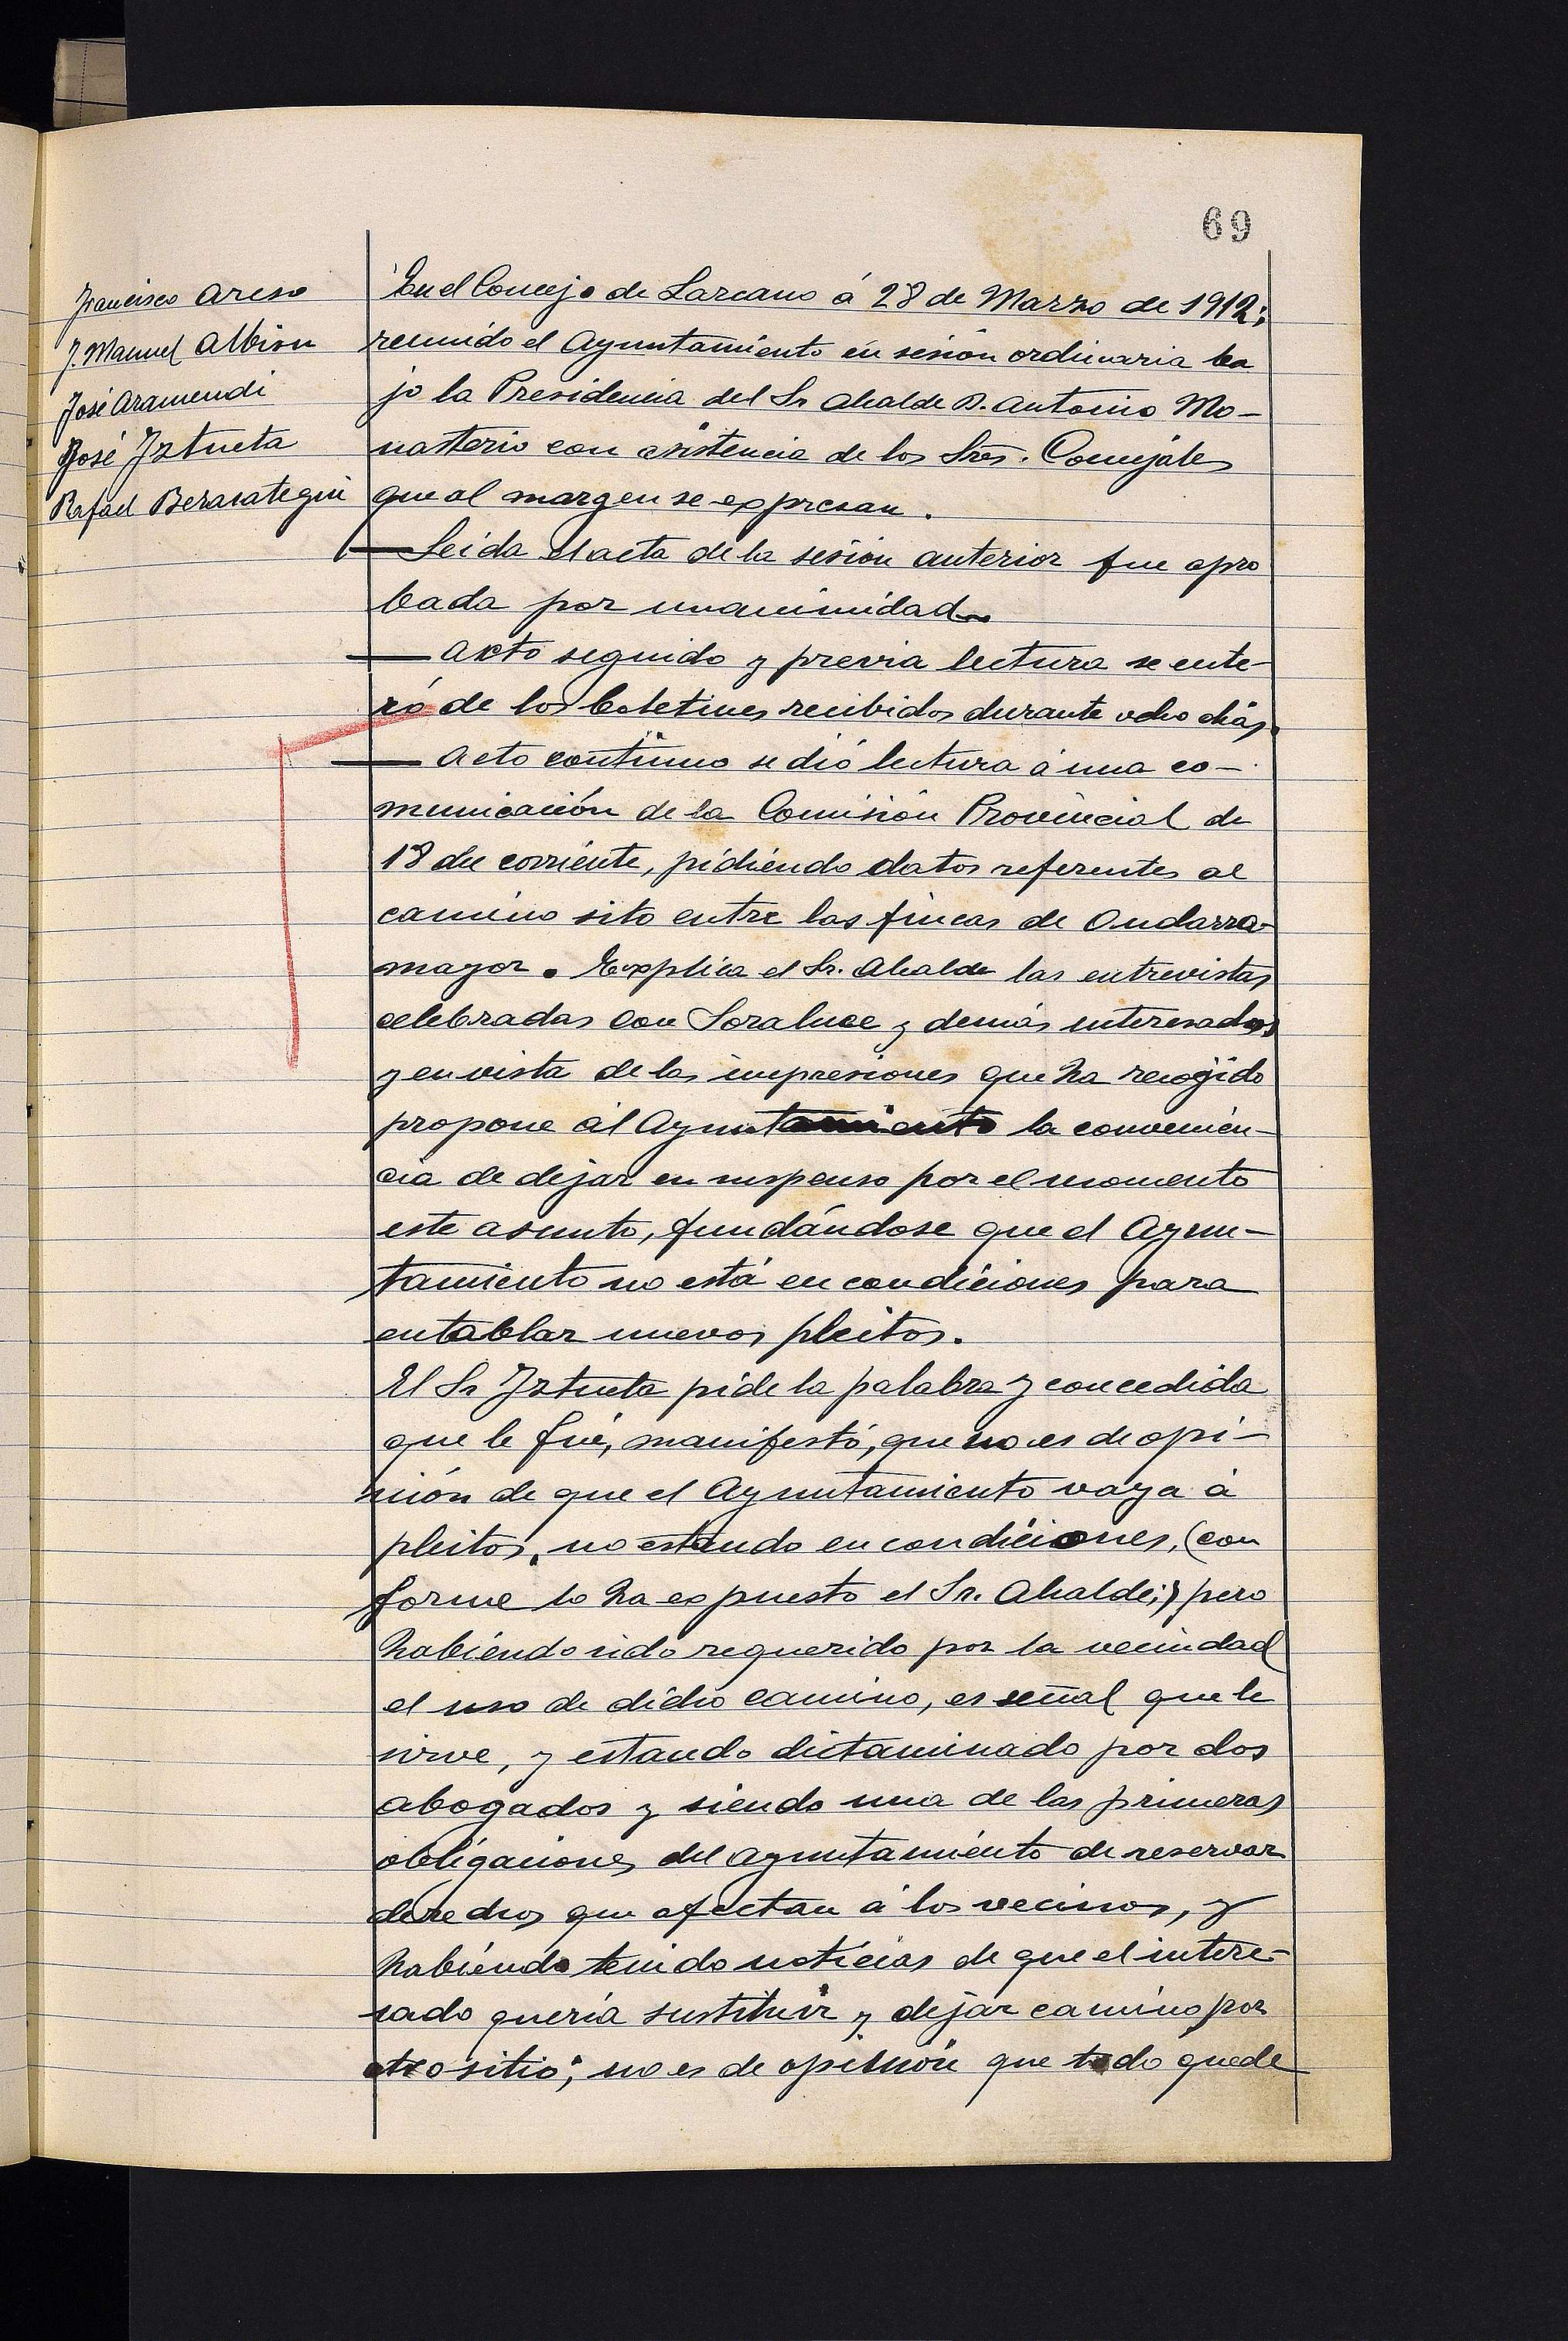 69
Francisco Areso
J. Manuel Albisu
José Aramendi
José Iztueta
Rafael Berasategui
En el Concejo de Lazcano á 28 de Marzo de 1912;
reunido el Ayuntamiento en sesión ordinaria ba
jo la Presidencia del Sr Alcalde D. Antonio Mo-
nasterio con asistencia de los Sres. Concejales
que al margen se expresan.
— Leida el acta de la sesión anterior fue apro
bada por unanimidad
— Acto seguido y previa lectura se ente-
ró de los boletines recibidos durante ocho días.
— Acto contínuo se dió lectura á una co-
municación de la Comisión Provincial de
18 del corriente, pidiendo datos referentes al
camino sito entre las fincas de Ondarra-
mayor. Explica el Sr. Alcalde las entrevistas
celebradas con Soraluce y demás interesados
y en vista de las impresiones que ha recogido
propone al Ayuntamiento la convenien-
cia de dejar en suspenso por el momento
este asunto, fundándose que el Ayun-
tamiento no está en condiciones para
entablar nuevos pleitos.
El Sr Iztueta pide la palabra y concedida
que le fué, manifestó, que no es de opi-
nión de que el Ayuntamiento vaya á
pleitos, no estando en condiciones, (con
forme lo ha expuesto el Sr. Alcalde;) pero
habiendo sido requerido por la vecindad
el uso de dicho camino, es señal que le
sirve, y estando dictaminado por dos
abogados y siendo una de las primeras
obligaciones del Ayuntamiento de reservar
derechos que afectan á los vecinos, y
habiendo tenido noticias de que el intere-
sado quería sustituir y dejar camino por
otro sitio; no es de opinión que todo quede